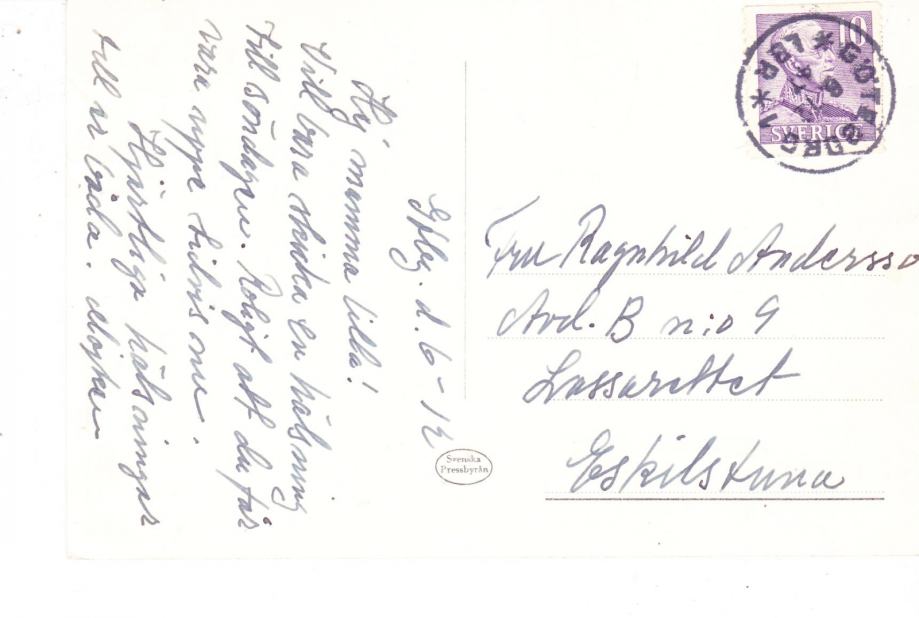 Gbg. d. 6-12
Hej mamma lilla!
Vill bara skicka en hälsning
till söndagen. Roligt att du får
vara uppe tidvis nu.
Hjärtliga hälsningar
till er båda.
Fru Ragnhild Andersso
Avd. B n:o 9
Lassarettet
Eskilstuna
Svenska
Pressbyrån
10
SVERIGE
GÖTEBORG 1 * LBR *